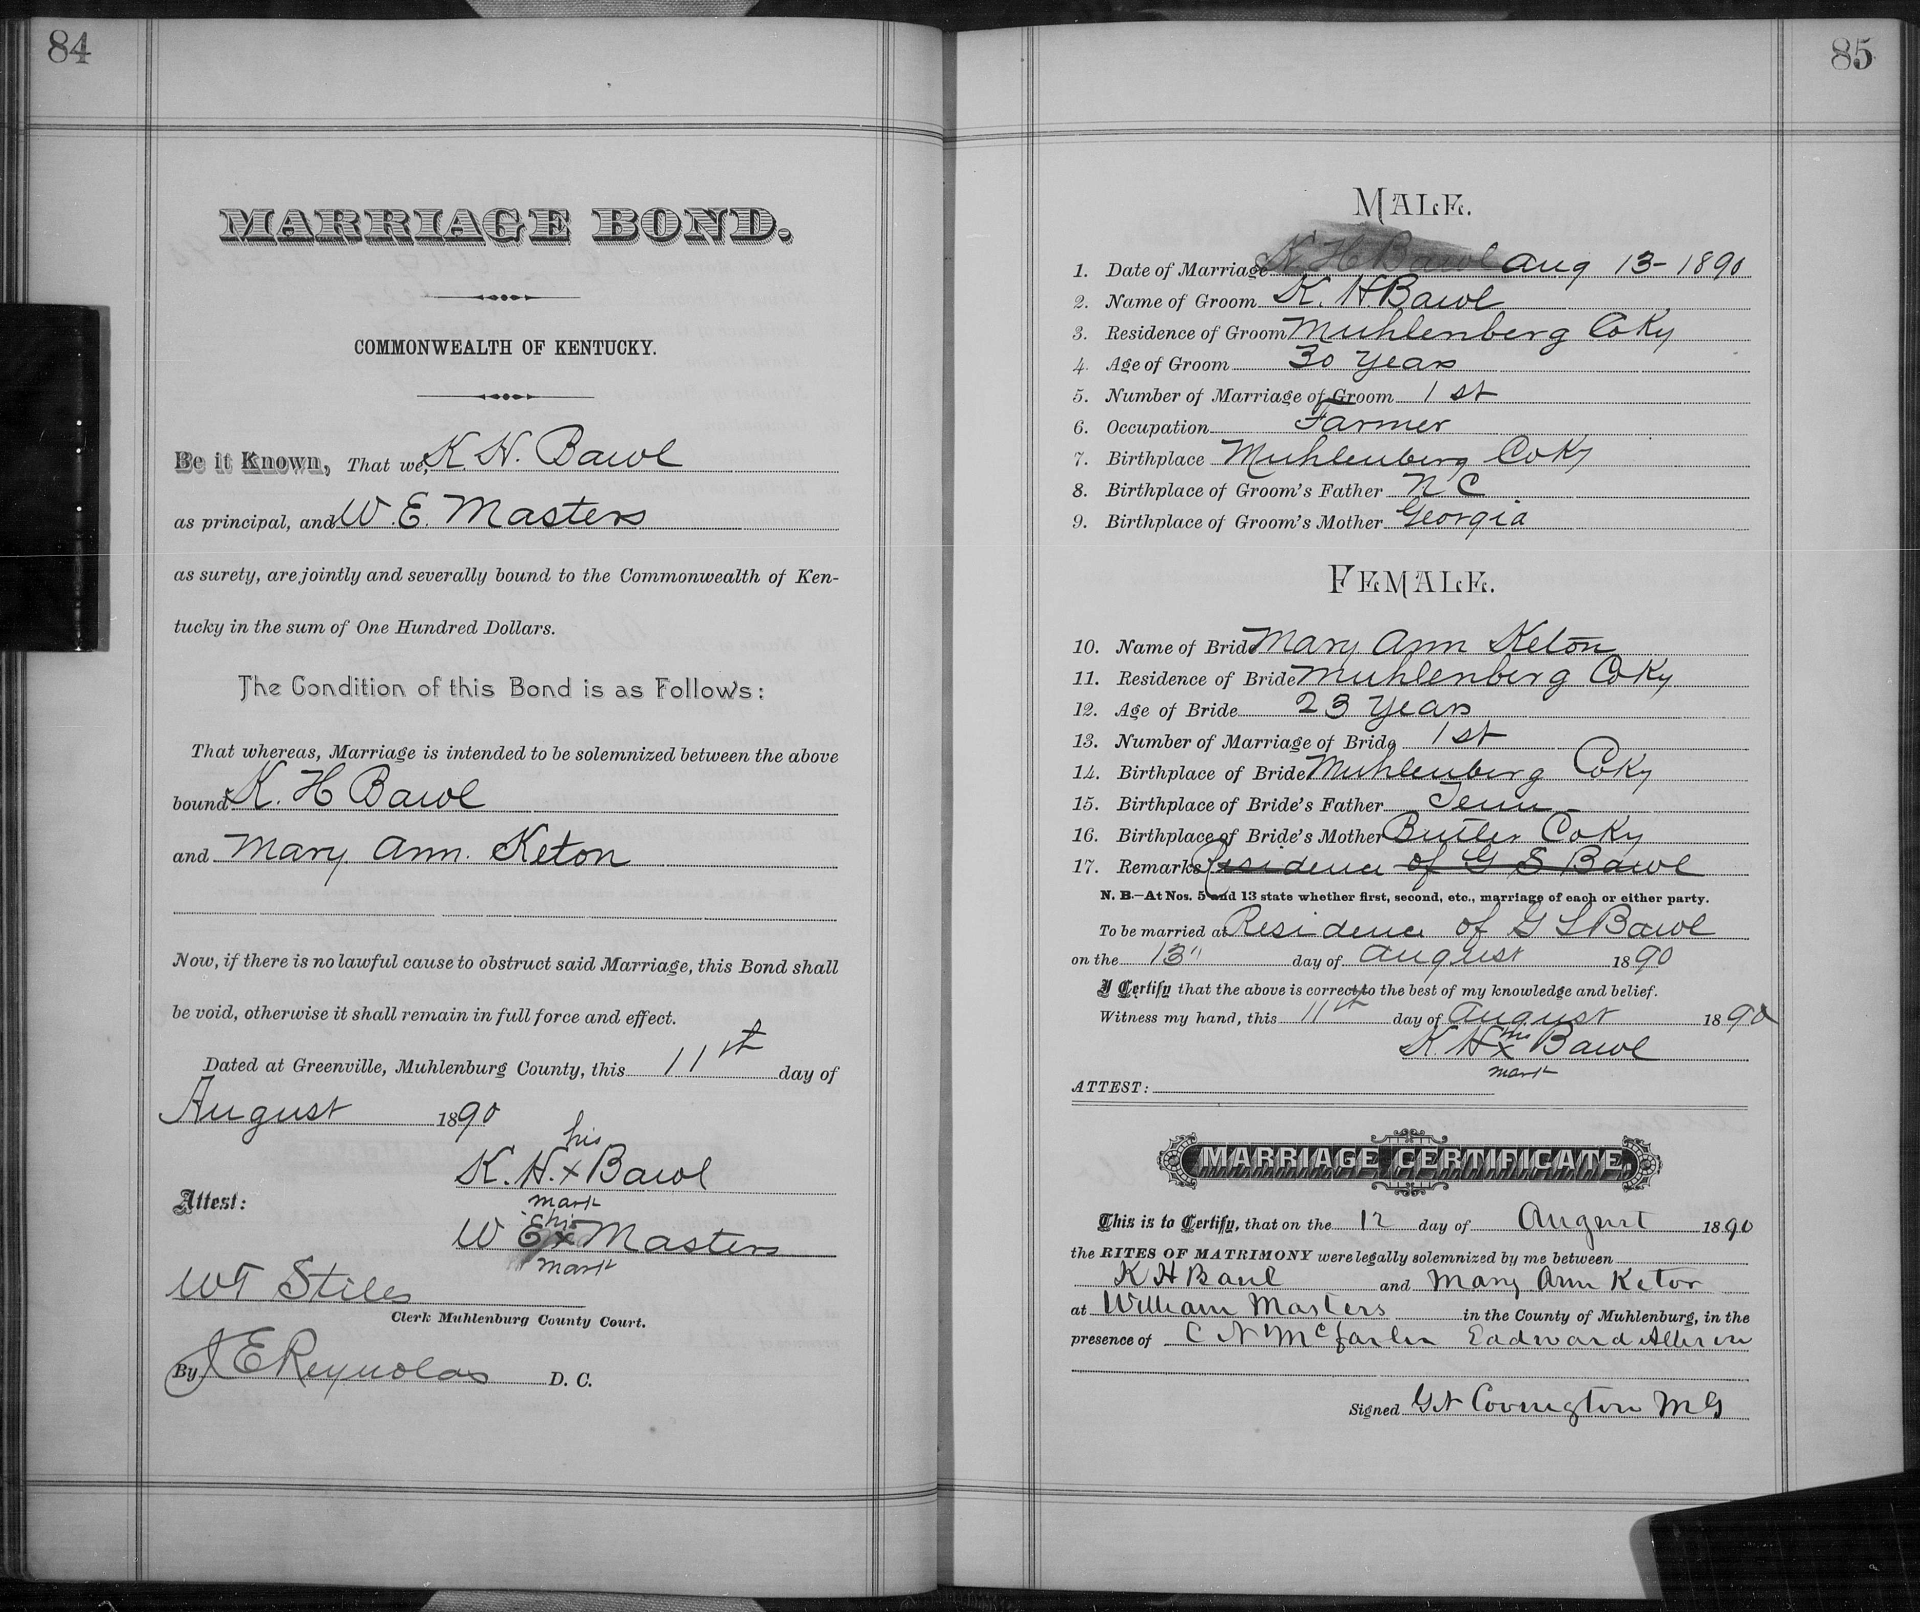 84
MARRIAGE BOND.
COMMONWEALTH OF KENTUCKY.
Be it Known, That we, K. H. Bawl
as principal, and W. E. Masters
as surety, are jointly and severally bound to the Commonwealth of Ken-
tucky in the sum of One Hundred Dollars.
The Condition of this Bond is as Follows:
That whereas, Marriage is intended to be solemnized between the above
bound K. H Bawl
and Mary Ann. Keton
Now, if there is no lawful cause to obstruct said Marriage, this Bond shall
be void, otherwise it shall remain in full force and effect.
Dated at Greenville, Muhlenburg County, this 11th day of
August 1890
his
K. H. x Bawl
mark
Attest:
his
W E x Masters
mark
WT Stiles
Clerk Muhlenburg County Court.
By J E Reynolds D. C.
85
MALE.
1. Date of Marriage K H Bawl Aug 13- 1890
2. Name of Groom K. H. Bawl
3. Residence of Groom Muhlenberg Co Ky
4. Age of Groom 30 years
5. Number of Marriage of Groom 1st
6. Occupation Farmer
7. Birthplace Muhlenberg Co Ky
8. Birthplace of Groom's Father N C
9. Birthplace of Groom's Mother Georgia
FEMALE.
10. Name of Bride Mary Ann Keton
11. Residence of Bride Muhlenberg Co Ky
12. Age of Bride 23 years
13. Number of Marriage of Bride 1st
14. Birthplace of Bride Muhlenberg Co Ky
15. Birthplace of Bride's Father Tenn
16. Birthplace of Bride's Mother Butler Co Ky
17. Remarks Residence of G S Bawl
N. B.—At Nos. 5 and 13 state whether first, second, etc., marriage of each or either party.
To be married at Residence of G S Bawl
on the 13" day of August 1890
I Certify that the above is correct to the best of my knowledge and belief.
Witness my hand, this 11th day of August 1890
his
K. H x Bawl
mark
ATTEST:
MARRIAGE CERTIFICATE.
This is to Certify, that on the 12 day of August 1890
the RITES OF MATRIMONY were legally solemnized by me between
K H Baul and Mary Ann Keton
at William Masters in the County of Muhlenburg, in the
presence of C N McFarlin Eadward
Signed G N Covington M G